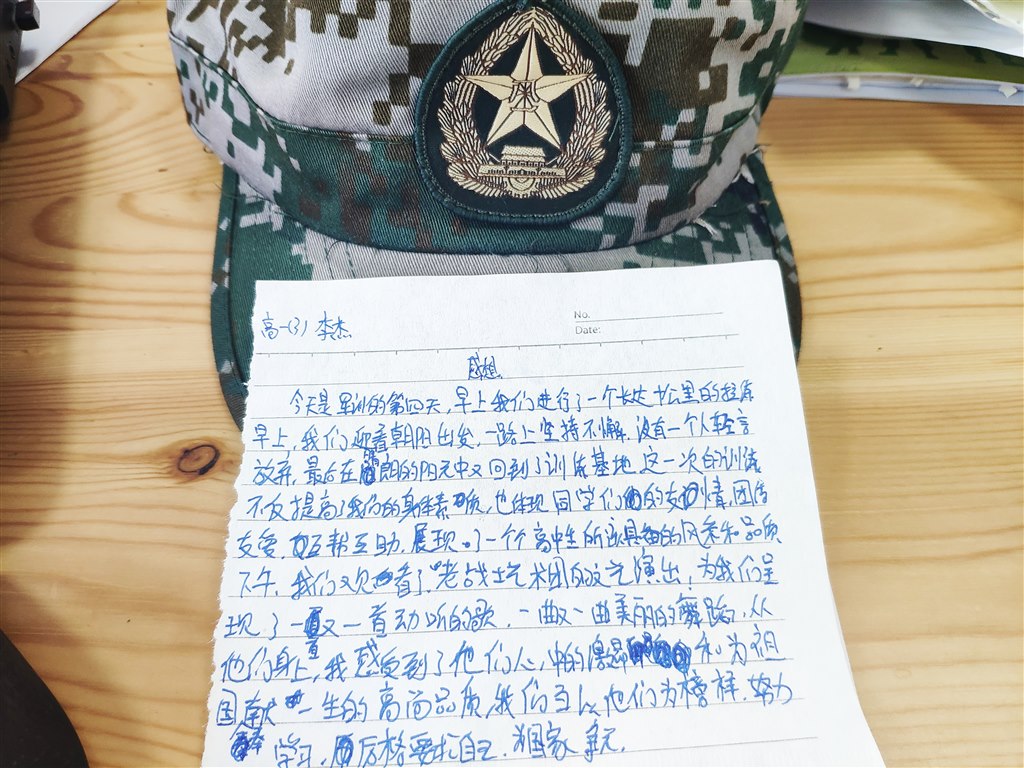 八一
高一(3) 李杰
No.
Date:
感想
今天是军训的第四天,早上我们进行了一个长达十公里的拉练
早上,我们迎着朝阳出发,一路上坚持不懈,没有一个人轻言
放弃,最后在晴朗的阳光中又回到了训练基地,这一次的训练
不仅提高了我们的身体素质,也体现同学们的友情,团结
友爱,互帮互助,展现了一个高中生所该具备的风采和品质
下午,我们又观看了“老战士艺术团的文艺演出,为我们呈
现了一首又一首动听的歌,一曲又一曲美丽的舞蹈,从
他们身上,我感受到了他们心中的激昂和为祖
国奉献一生的高尚品质,我们当以他们为榜样,努力
学习,严格要求自己,为国家争光.